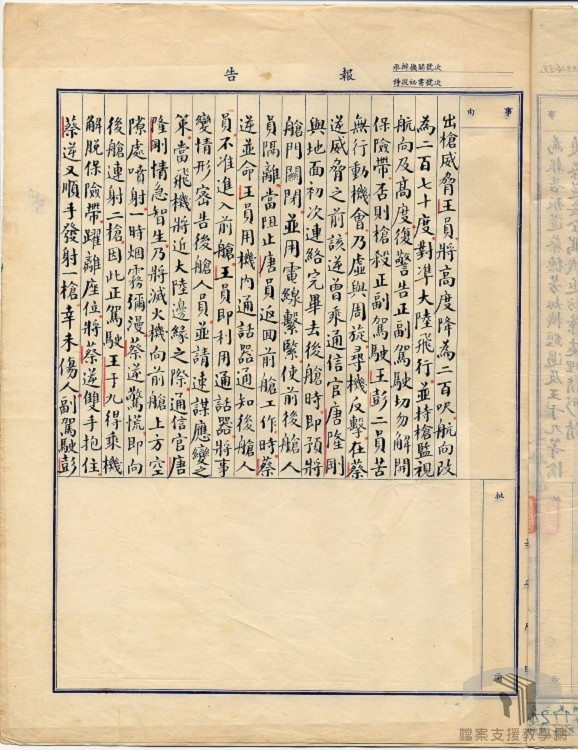 報告
承辦機關號次
侍從祕書號次
事由
出槍威脅王員將高度降為二百呎航向改
為二百七十度對準大陸飛行並持槍監視
航向及高度復警告正副駕駛切勿解開
保險帶否則槍殺正副駕駛王彭二員苦
無行動機會乃虛與周旋尋機反擊在蔡
逆威脅之前該逆曾乘通信官唐隆剛
與地面初次連絡完畢去後艙時即預將
艙門關閉並用電線繫緊使前後艙人
員隔離當阻止唐員返回前艙工作時蔡
逆並命王員用機內通話器通知後艙人
員不准進入前艙王員即利用通話器將事
變情形密告後艙人員並請速謀應變之
策當飛機將近大陸邊緣之際通信官唐
隆剛情急智生乃將滅火機向前艙上方空
隙處噴射一時烟霧瀰漫蔡逆驚慌即向
後艙連射二槍因此正駕駛王于九得乘機
解脫保險帶躍離座位將蔡逆雙手抱住
蔡逆又順手發射一槍幸未傷人副駕駛彭
批示
檔案支援教學網